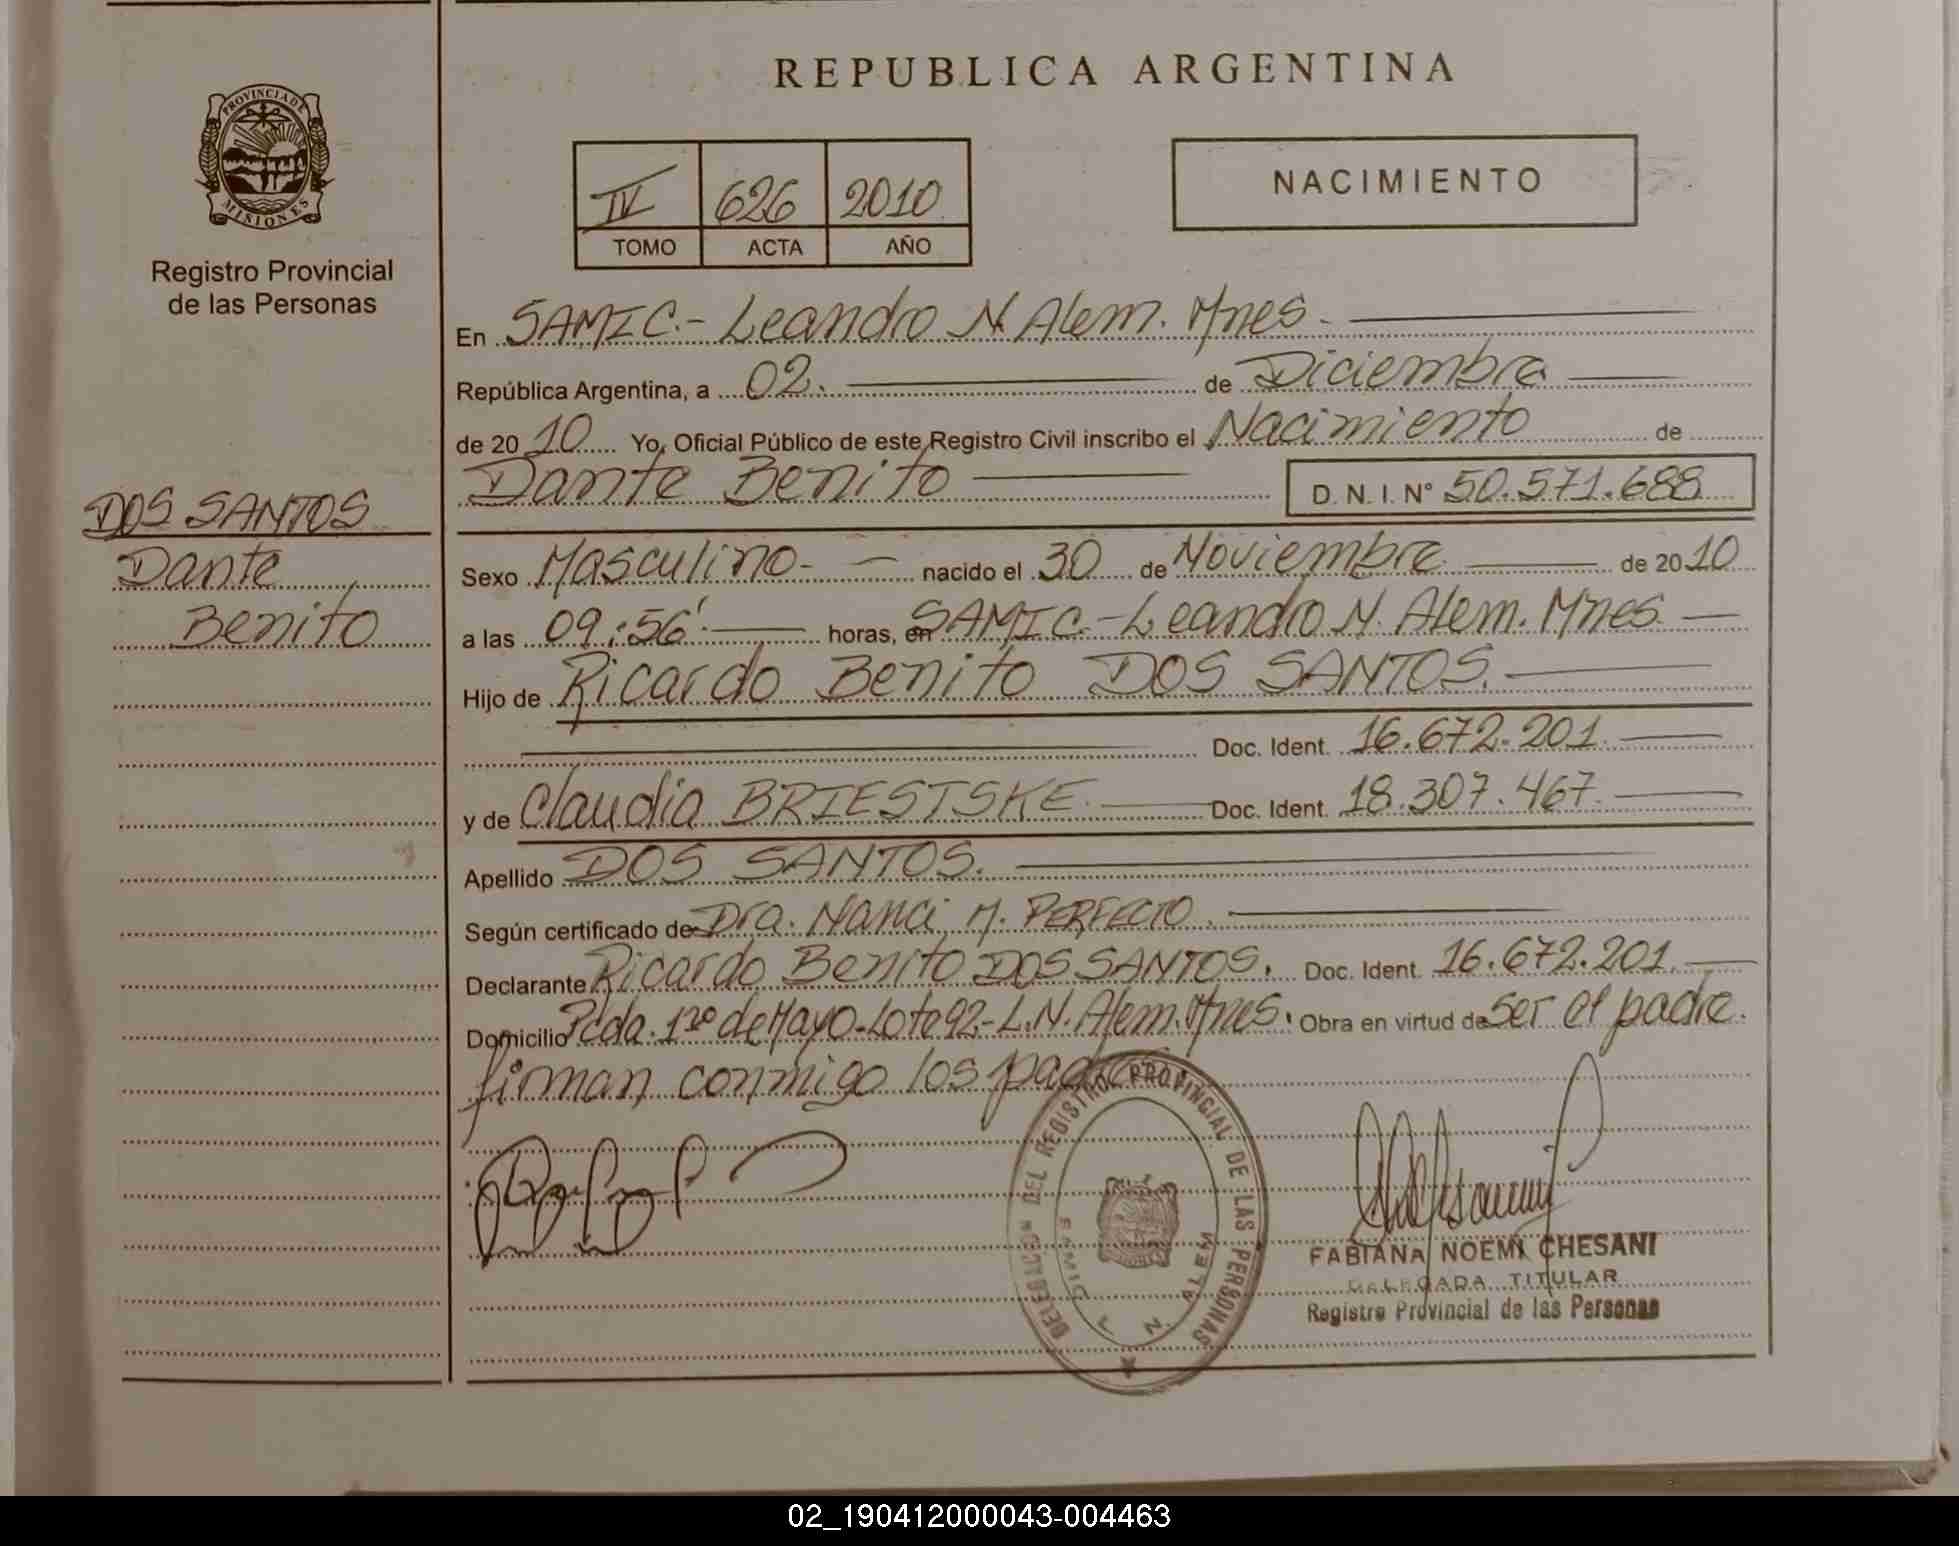 REPUBLICA ARGENTINA
PROVINCIA DE
MISIONES
Registro Provincial
de las Personas
IV 626 2010
TOMO ACTA AÑO
NACIMIENTO
En SAMIC.- Leandro N. Alem. Mnes.
República Argentina, a 02. de Diciembre
de 2010 Yo, Oficial Público de este Registro Civil inscribo el Nacimiento de
Dante Benito D. N. I. N° 50.571.688
DOS SANTOS
Dante
Benito
Sexo Masculino.- nacido el 30 de Noviembre de 2010
a las 09:56' horas, en SAMIC.-Leandro N. Alem. Mnes.
Hijo de Ricardo Benito DOS SANTOS.
Doc. Ident. 16.672.201.
y de Claudia BRIESTSKE. Doc. Ident. 18.307.467.
Apellido DOS SANTOS.
Según certificado de Dra. Nanci M. PERFECTO.
Declarante Ricardo Benito DOS SANTOS. Doc. Ident. 16.672.201.
Domicilio Pcda. 1ro de Mayo-Lote 92-L.N. Alem. Mnes. Obra en virtud de ser el padre.
firman conmigo los padres
DELEGACION DEL REGISTRO PROVINCIAL DE LAS PERSONAS
SAMIC L. N. ALEM
FABIANA NOEMI CHESANI
DELEGADA TITULAR
Registro Provincial de las Personas
02_190412000043-004463